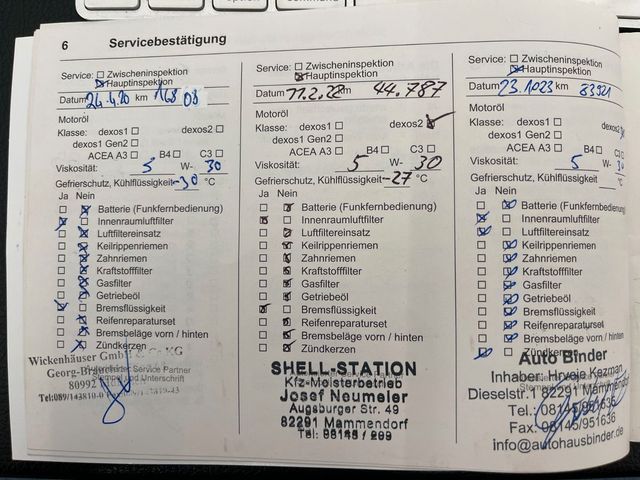 option
command
6 Servicebestätigung
Service: Zwischeninspektion
Hauptinspektion
Datum 24.4.20 km
Motoröl
Klasse: dexos1 dexos2
dexos1 Gen2
ACEA A3 B4 C3
Viskosität: 5 W- 30
Gefrierschutz, Kühlflüssigkeit -30 °C
Ja Nein
Batterie (Funkfernbedienung)
Innenraumluftfilter
Luftfiltereinsatz
Keilrippenriemen
Zahnriemen
Kraftstofffilter
Gasfilter
Getriebeöl
Bremsflüssigkeit
Reifenreparaturset
Bremsbeläge vorn / hinten
Zündkerzen
Wickenhäuser GmbH & Co. KG
Georg-Brauch
80992
Service Partner
Stempel und Unterschrift
Tel:089/143810-0
Service: Zwischeninspektion
Hauptinspektion
Datum 11.2.22 km 44.787
Motoröl
Klasse: dexos1 dexos2
dexos1 Gen2
ACEA A3 B4 C3
Viskosität: 5 W- 30
Gefrierschutz, Kühlflüssigkeit -27 °C
Ja Nein
Batterie (Funkfernbedienung)
Innenraumluftfilter
Luftfiltereinsatz
Keilrippenriemen
Zahnriemen
Kraftstofffilter
Gasfilter
Getriebeöl
Bremsflüssigkeit
Reifenreparaturset
Bremsbeläge vorn / hinten
Zündkerzen
SHELL-STATION
Kfz-Meisterbetrieb
Josef Neumeier
Augsburger Str. 49
82291 Mammendorf
Tel: 08145 / 299
Service: Zwischeninspektion
Hauptinspektion
Datum 23.1023 km 83921
Motoröl
Klasse: dexos1 dexos2
dexos1 Gen2
ACEA A3 B4 C3
Viskosität: 5 W- 30
Gefrierschutz, Kühlflüssigkeit °C
Ja Nein
Batterie (Funkfernbedienung)
Innenraumluftfilter
Luftfiltereinsatz
Keilrippenriemen
Zahnriemen
Kraftstofffilter
Gasfilter
Getriebeöl
Bremsflüssigkeit
Reifenreparaturset
Bremsbeläge vorn / hinten
Zündkerzen
Auto Binder
Inhaber: Hrvoje Kezman
Dieselstr.1 82291 Mammendorf
Tel.: 08145/951635
Fax: 08145/951636
info@autohausbinder.de